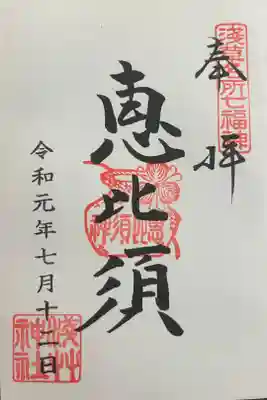 奉拝
浅草名所七福神
恵比須
令和元年七月十二日
浅草神社